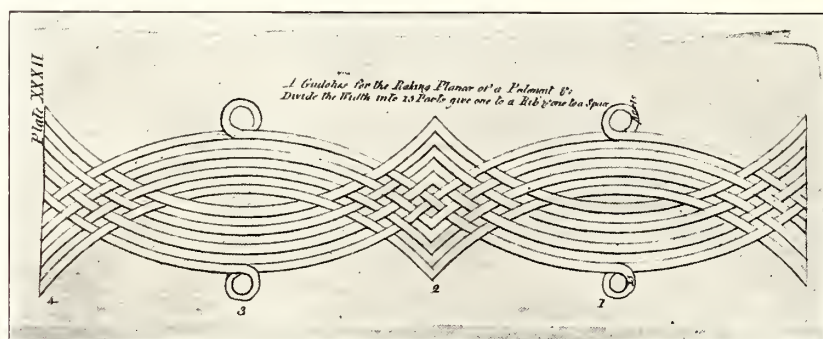 Plate XXXII
A Guilohis for the Raking Planar of a Pedement &c
Divide the Width into 13 Parts give one to a Rib & one to a Space
4
3
2
1